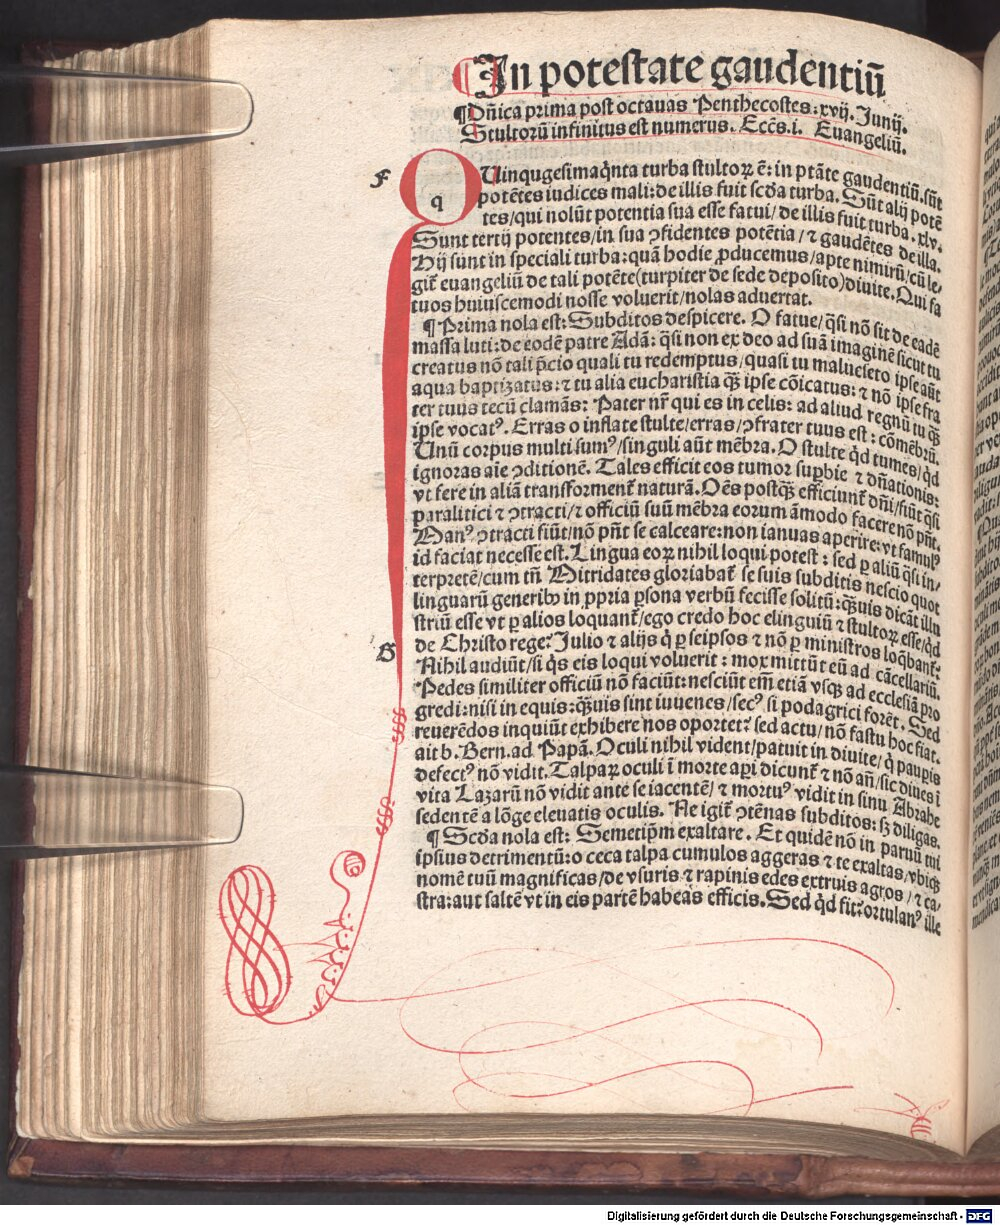 ¶ In potestate gaudentiū
¶ Dñica prima post octauas Penthecostes: xvij. Junij.
Stultorū infinitus est numerus. Ecces. i. Euangeliū.
F
q
QUinqugesimaq̇nta turba stultoꝝ ē: in ptāte gaudentiū. sūt
potētes iudices mali: de illis fuit scḋa turba. Sūt alij potē
tes/qui nolūt potentia sua esse fatui/de illis fuit turba. xlv.
Sunt tertij potentes/in sua ꝯfidentes potētia/⁊ gaudētes de illa.
Hij sunt in speciali turba: quā hodie ꝓducemus/apte nimirū/cū le-
git᷑ euangeliū de tali potēte(turpiter de sede deposito)diuite. Qui fa
tuos huiuscemodi nosse voluerit/nolas aduertat.
¶ Prima nola est: Subditos despicere. O fatue/q̇si nō sit de eadē
massa luti: de eodē patre Adā: q̇si non ex deo ad suā imaginē sicut tu
creatus nō tali p̄cio quali tu redemptus/quasi tu malucleto ipse aūt
aqua baptizatus: ⁊ tu alia eucharistia qꝫ̄ ipse cōicatus: ⁊ nō ipse fra
ter tuus tecū clamās: Pater nr̄ qui es in celis: ad aliud regnū tu qꝫ̄
ipse vocatꝰ. Erras o inflate stulte/erras/ꝯfrater tuus est: cōmēbrū.
Unū corpus multi sumꝰ/singuli aūt mēbra. O stulte qḋ tumes/qḋ
ignoras aīe ꝯditionē. Tales efficit eos tumor suꝑbie ⁊ dn̄ationis:
vt fere in aliā transforment᷑ naturā. Oēs postqꝫ̄ efficiunt᷑ dn̄i/fiūt q̇si
paralitici ⁊ ꝯtracti/⁊ officiū suū mēbra eorum āmodo facere nō pn̄t.
Manꝰ ꝯtracti fiūt/nō pn̄t se calceare: non ianuas aperire: vt famulꝰ
id faciat necesse est. Lingua eoꝝ nihil loqui potest: sed ꝑ aliū q̇si in-
terpretē/cum tn̄ Mitridates gloriabat᷑ se suis subditis nescio quot
linguarū generibꝰ in ꝓpria ꝑsona verbū fecisse solitū: qꝫ̄uis dicāt illu
striū esse vt ꝑ alios loquant᷑/ego credo hoc elinguiū ⁊ stultoꝝ esse/qḋ
G
de Christo rege? Julio ⁊ alijs q̇ ꝑ seipsos ⁊ nō ꝑ ministros loq̄bant᷑:
Nihil audiūt/si q̇s eis loqui voluerit: mox mittūt eū ad cācellariū.
Pedes similiter officiū nō faciūt: nesciūt em̄ etiā vsqꝫ ad ecclesiā pro
gredi: nisi in equis: qꝫ̄uis sint iuuenes/secꝰ si podagrici forēt. Sed
reuerēdos inquiūt exhibere nos oportet? sed actu/nō fastu hoc fiat.
ait b. Bern. ad Papā. Oculi nihil vident/patuit in diuite/q̇ pauꝑis
defectꝰ nō vidit. Talpaꝝ oculi ī morte aꝑi dicunt᷑ ⁊ nō añ/sic diues ī
vita Lazarū nō vidit ante se iacentē/ ⁊ mortuꝰ vidit in sinu Abrahe
sedentē a lōge eleuatis oculis. Ne igit᷑ ꝯtēnas subditos: sꝫ diligas.
¶ Scḋa nola est: Semetip̄m exaltare. Et quidē nō in paruū tui
ipsius detrimentū: o ceca talpa cumulos aggeras ⁊ te exaltas/vbiqꝫ
nomē tuū magnificas/de vsuris ⁊ rapinis edes extruis agros/⁊ ca-
stra: aut saltē vt in eis partē habeas efficis. Sed qḋ fit? ortulanꝰ ille
Digitalisierung gefördert durch die Deutsche Forschungsgemeinschaft - DFG